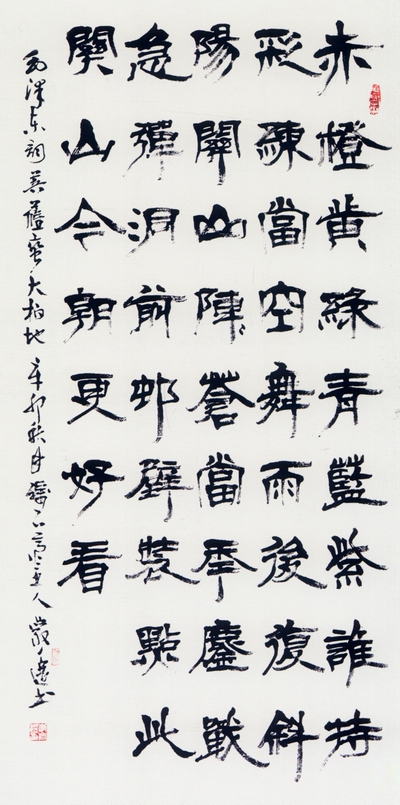 赤橙黄綠青藍紫誰持
彩練當空舞雨後復斜
陽關山陣〻蒼當秊鏖戰
急彈洞前邨壁裝點此
關山今朝更好看
毛澤東詞菩薩蠻大柏地 辛卯秋月 人 嚴 書